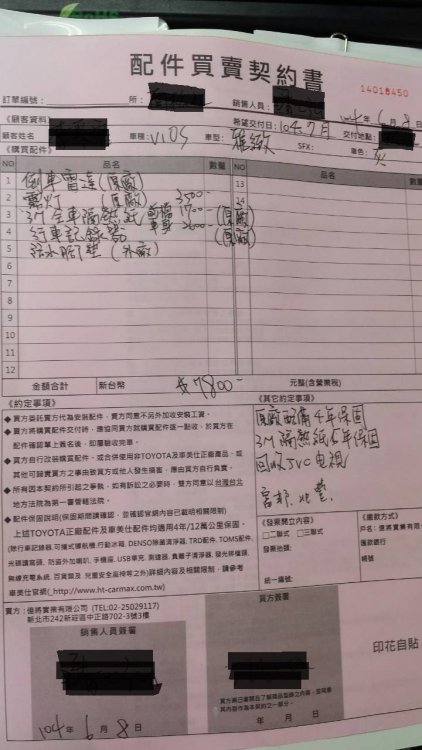 配件買賣契約書
14018450
訂單編號： 所： 銷售人員：
《顧客資料》 希望交付日：104.7月 104年6月8日
顧客姓名 車種：VIOS 車型：雅緻 SFX： 交付地點： 車色：灰
《購買配件》
NO 品名 數量 NO 品名 數量
1 倒車雷達（原廠） 13
2 霧灯（原廠） 3500- 14
3 3M全車隔熱紙 前檔 1700- （原廠）
4 行車記錄器 車身 2600- （原廠）
5 踏水腳墊（外廠）
6
7
8
9
10
11
12
金額合計 新台幣 $7800- 元整(含營業稅)
《約定事項》
◆ 買方委託賣方代為安裝配件，賣方同意不另外加收安裝工資。
◆ 賣方將購買配件交付時，應協同買方就購買配件逐一點收，於買方在
配件確認單上簽名後，即屬驗收完畢。
◆ 買方自行改裝購買配件、或合併使用非TOYOTA及車美仕正廠產品，或
其他可歸責買方之事由致買方或他人發生損害，應由買方自行負責。
◆ 所有因本契約所引起之爭執，如有訴訟之必要時，雙方同意以台灣台北
地方法院為第一審管轄法院。
◆ 配件保固說明(保固期間請確認，並確認官網內容已載明相關限制)
上述TOYOTA正廠配件及車美仕配件均適用4年/12萬公里保固。
(除行車記錄器,可攜式導航機,行動冰箱,DENSO除菌清淨器,TRD配件,TOMS配件,
無線充電系統,百貨類及 兒童安全座椅等之外)詳細內容及相關限制，請參考
車美仕官網(_http://www.ht-carmax.com.tw)
《其它約定事項》
原廠配備4年保固
3M隔熱紙5年保固
回收JVC电視
《發票開立內容》
□二聯式 □三聯式
發票抬頭：
統一編號：
《繳款方式》
戶名：億將實業有限公
匯款銀行
帳號
賣方：億將實業有限公司 (TEL:02-25029117)
新北市242新莊區中正路702-3號3樓
銷售人員簽署
104年6月8日
買方簽署
年 月 日
印花自貼